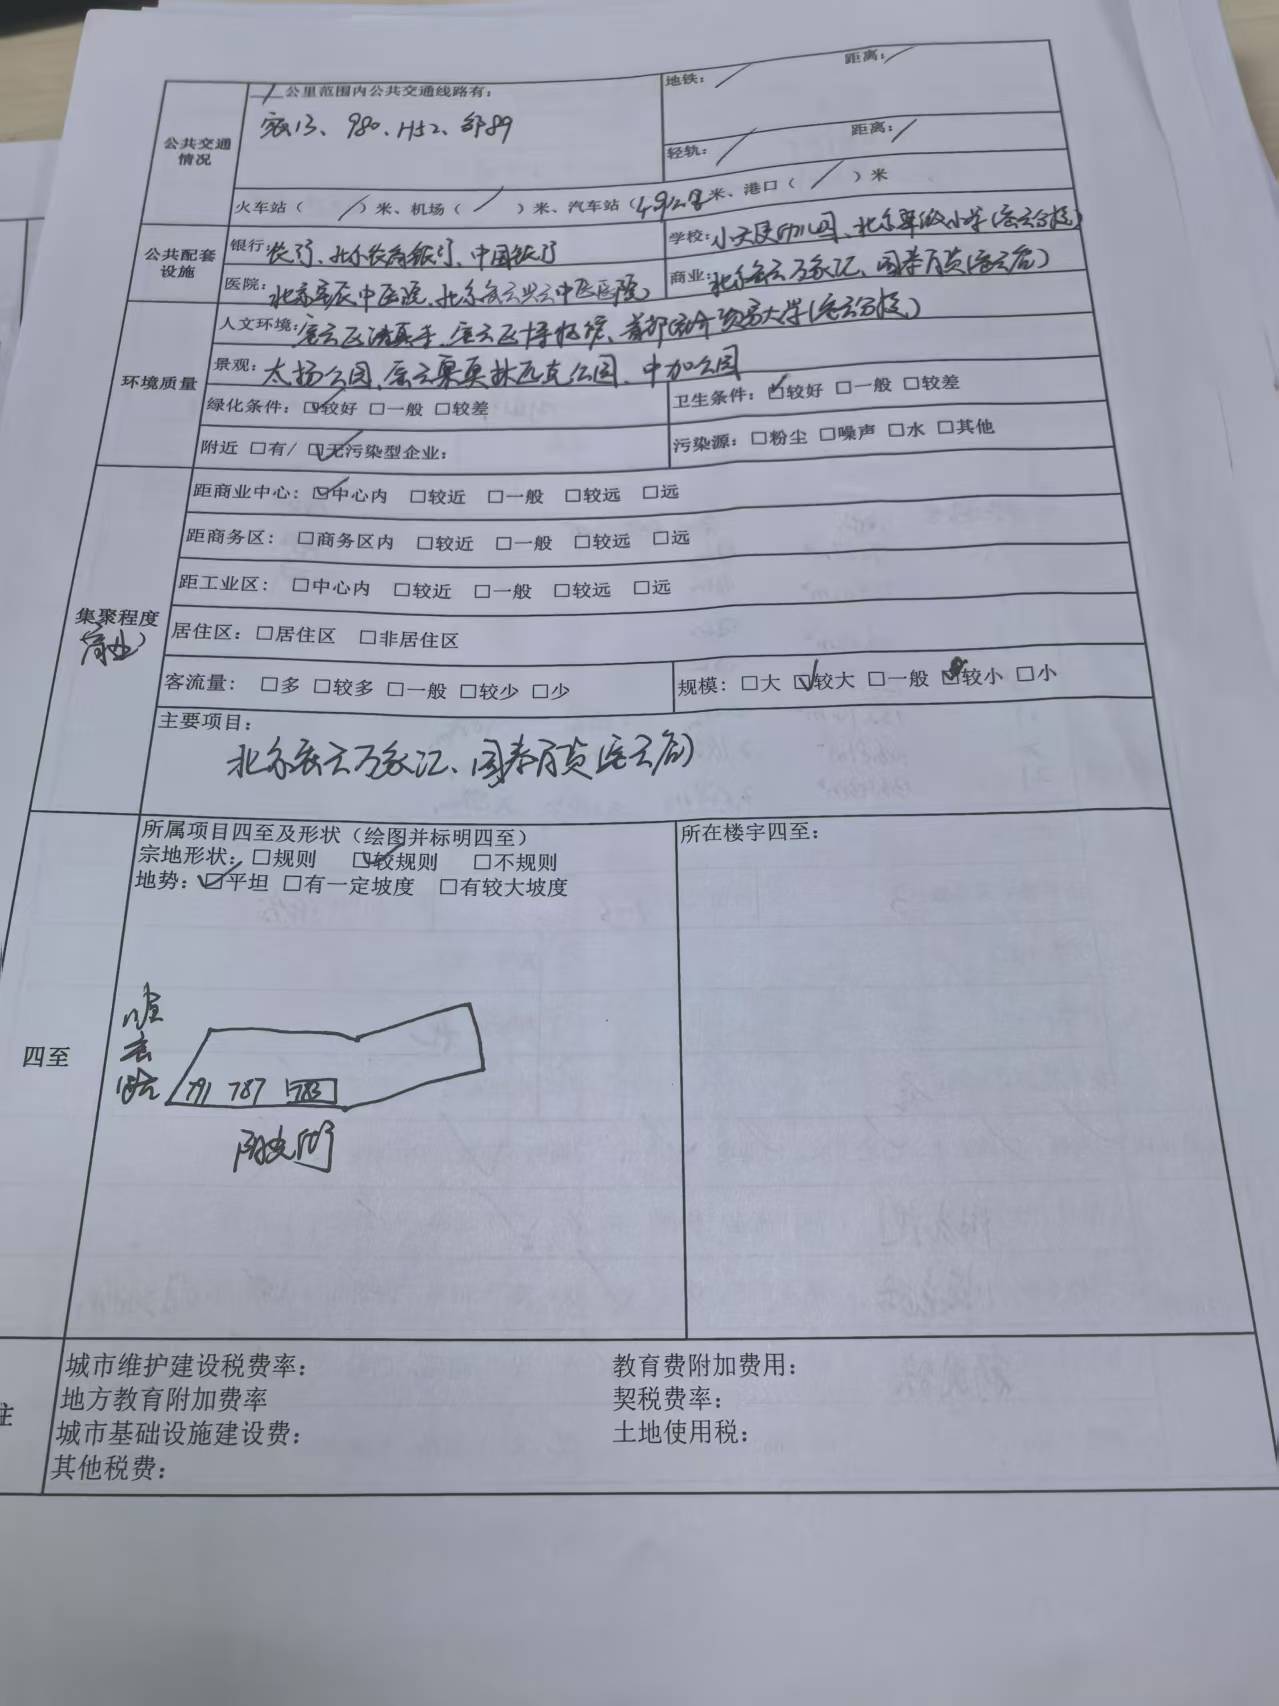 公共交通
情况
/ 公里范围内公共交通线路有:
密13、980、H52、郊89
地铁: / 距离: /
轻轨: / 距离: /
火车站( / )米、机场( / )米、汽车站( 米、港口( / )米
公共配套
设施
银行: 农行、北京农商银行、中国银行
学校: 小天使幼儿园、北京 小学(密云分校)
医院: 北京 中医院、北京密云兴云中医医院
商业: 北京密云万象汇、国泰百货(密云店)
环境质量
人文环境: 密云区清真寺、密云区博物馆、首都经济贸易大学(密云分校)
景观: 太扬公园、密云奥林匹克公园、中加公园
绿化条件: ☑较好 □一般 □较差
卫生条件: ☑较好 □一般 □较差
附近 □有/ ☑无污染型企业:
污染源: □粉尘 □噪声 □水 □其他
集聚程度
(商业)
距商业中心: ☑中心内 □较近 □一般 □较远 □远
距商务区: □商务区内 □较近 □一般 □较远 □远
距工业区: □中心内 □较近 □一般 □较远 □远
居住区: □居住区 □非居住区
客流量: □多 □较多 □一般 □较少 □少
规模: □大 ☑较大 □一般 □较小 □小
主要项目:
北京密云万象汇、国泰百货(密云店)
四至
所属项目四至及形状(绘图并标明四至)
宗地形状: □规则 ☑较规则 □不规则
地势: ☑平坦 □有一定坡度 □有较大坡度
所在楼宇四至:
云
路
791 787 783
街
注
城市维护建设税费率:
教育费附加费用:
地方教育附加费率
契税费率:
城市基础设施建设费:
土地使用税:
其他税费: